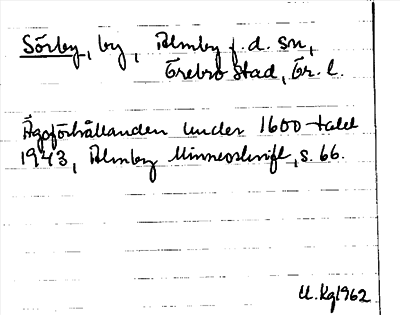 Sörby, by, Almby f.d. sn,
Örebro stad, Ör. l.
Ägoförhållanden under 1600-talet
1943, Almby Minnesskrift, s. 66.
U. Kg 1962